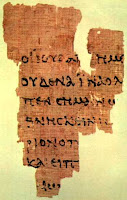 ΟΙ ΙΟΥΔΑΙ ΗΜΕ
ΟΥΔΕΝΑ ΙΝΑ ΟΛΟ
ΠΕΝ CΗΜΑΙΝΩ
ΘΝΗCΚΕΙΝ
ΡΙΟΝ ΟΠ
ΚΑΙ ΕΙΠ